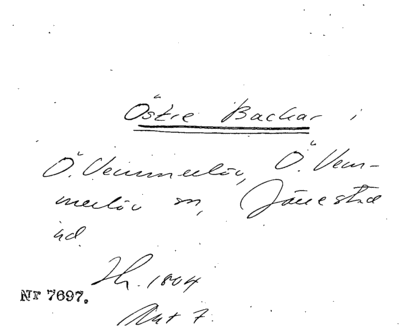 Östre Backar i
Ö. Vemmerlöv, Ö. Vem-
merlöv sn, Järrestad
hd.
Th. 1804
Nr 7697.
Akt 7.